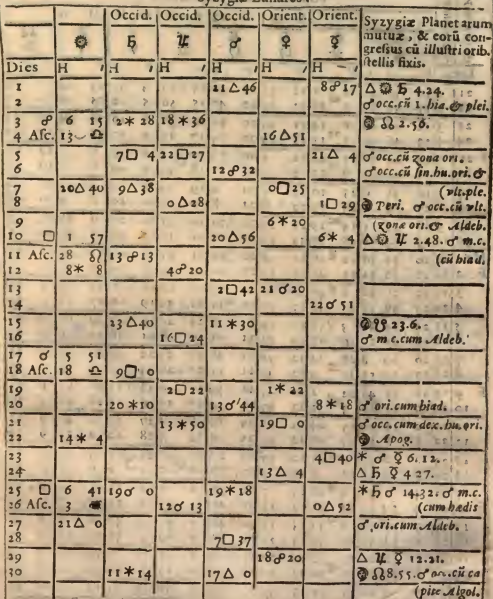 Syzygiæ Lunares.
Occid. Occid. Occid. Orient. Orient. Syzygiæ Planetarum
mutuæ, & eorū con-
☼ ♄ ♃ ♂ ♀ ☿ gressus cū illustriorib.
stellis fixis.
Dies H ′ H ′ H ′ H ′ H ′ H ′
1 21 △ 46 8 ☍ 17 △ ☼ ♄ 4.24.
2 ♂ occ.cū 1.hia.& ple.
3 ☍ 6 15 2 * 28 18 * 36 ☊ 2.56.
4 Asc. 13 ♎ 16 △ 51
5 7 □ 4 22 □ 27 21 △ 4 ♂ occ.cū zona ori.
6 12 ☍ 32 ♂ occ.cū sin.hu.ori.&
7 20 △ 40 9 △ 38 0 □ 25 (vlt.ple.
8 0 △ 28 1 □ 29 Peri. ♂ occ.cū vlt.
9 6 * 20 (zona ori.& Aldeb.
10 □ 1 57 20 △ 56 6 * 4 △ ☼ ♃ 2.48. ♂ m.c.
11 Asc. 28 ♌ 13 ☍ 13 (cū hiad.
12 8 * 8 4 ☍ 20
13 2 □ 42 21 ☌ 20
14 22 ☌ 51
15 23 △ 40 11 * 30 ☋ 23.6.
16 16 □ 24 ♂ m.c.cum Aldeb.
17 ☌ 5 51
18 Asc. 18 ♎ 9 □ 0
19 2 □ 22 1 * 22
20 20 * 10 13 ☌ 44 8 * 18 ♂ ori.cum hiad.
21 13 * 50 19 □ 0 ♂ occ.cum dex.hu.ori.
22 14 * 4 Apog.
23 4 □ 40 * ♂ ☿ 6.12.
24 13 △ 4 △ ♄ ☿ 4 27.
25 □ 6 41 19 ☌ 0 19 * 18 * ♄ ♂ 14.32. ♂ m.c.
26 Asc. 3 12 ☌ 13 0 △ 52 (cum hædis
27 21 △ 0 ♂ ori.cum Aldeb.
28 7 □ 37
29 18 ☍ 20 △ ♃ ☿ 12.21.
30 11 * 14 17 △ 0 ☊ 8.55. ♂ occ.cū ca
(pite Algol.